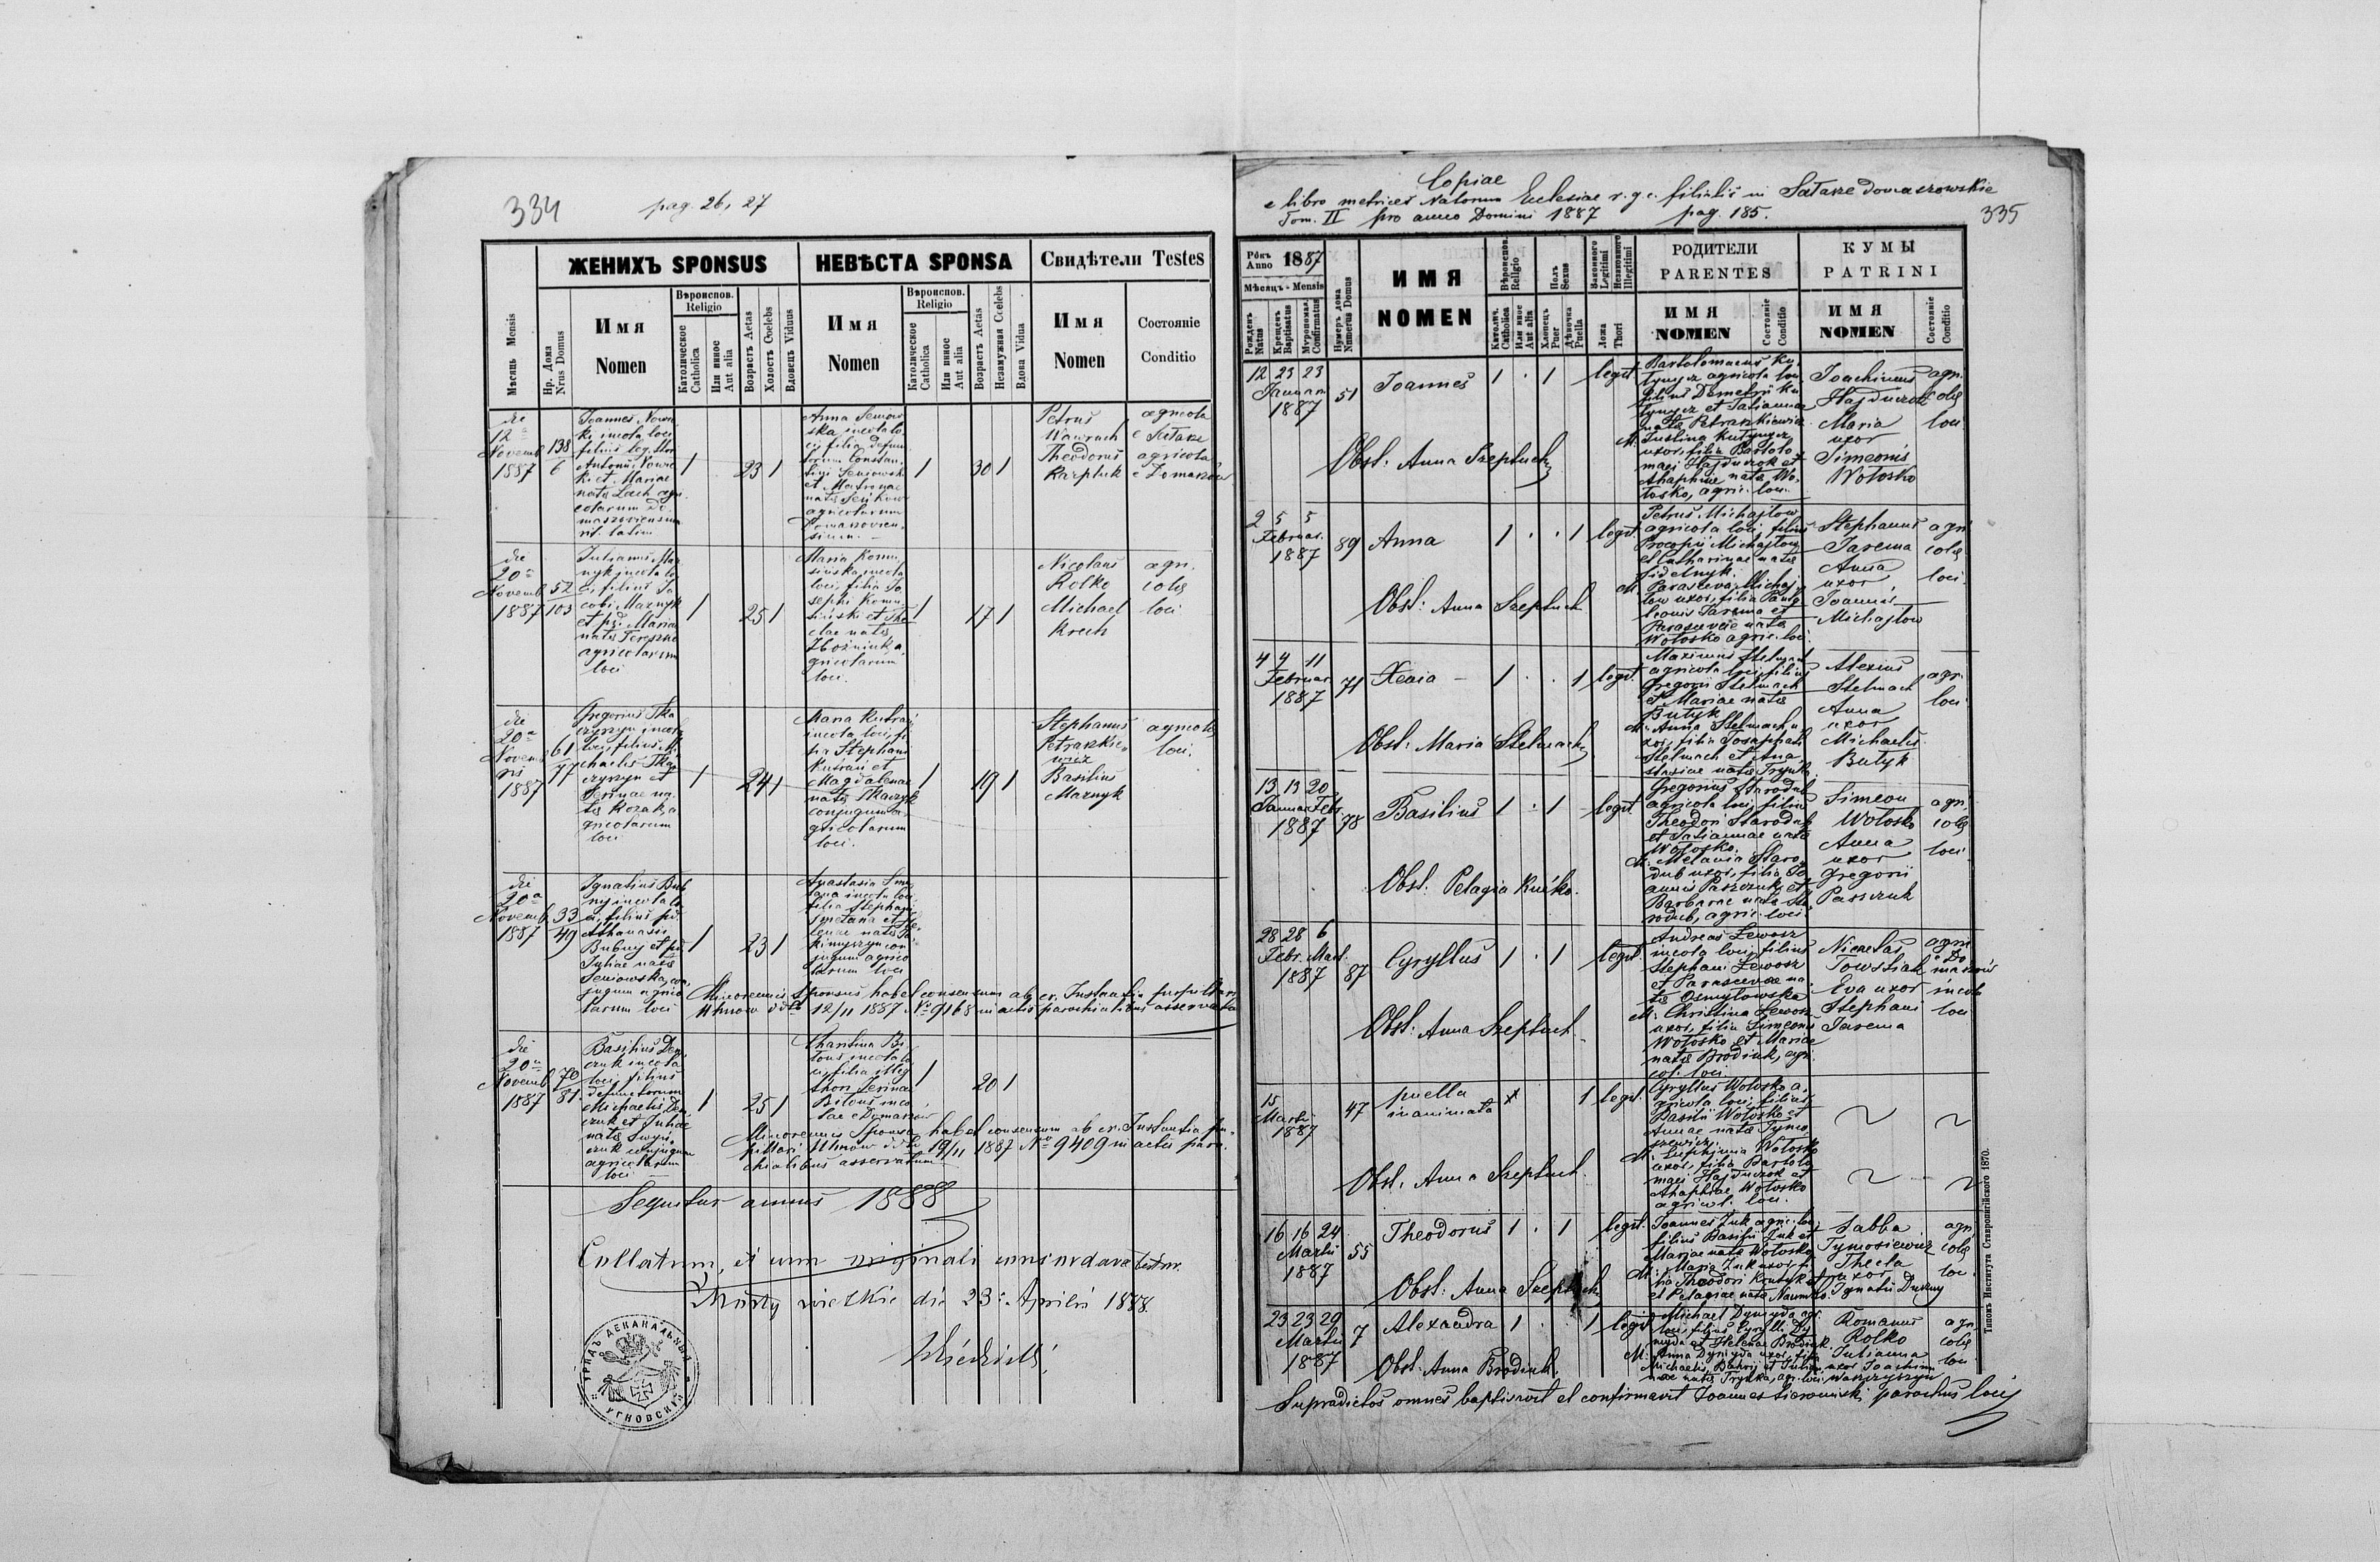 334
pag. 26, 27
Мѣсяць Mensis
Нр. Дома Nrus Domus
ЖЕНИХЪ SPONSUS
Имя Nomen
Вѣроиспов. Religio
Католическое Catholica
Или иное Aut alia
Возрастъ Aetas
Холостъ Coelebs
Вдовецъ Viduus
НЕВѢСТА SPONSA
Имя Nomen
Вѣроиспов. Religio
Католическое Catholica
Или иное Aut alia
Возрастъ Aetas
Незамужная Coelebs
Вдова Vidua
Свидѣтели Testes
Имя Nomen
Состояніе Conditio
die
12a
Novemb
1887
138
6
Joannes Nowic
ki incola loci
filius leg. thor.
Antonii Nowic
ki et Mariae
natae Lach agri
colarum Do
maszoviensium
rit. latini
1
23 1
Anna Seniow
ska incola lo
ci, filia defunc
torum Constan
tini Seniowski
et Matronae
natae
agricolarum
Domaszovien
sium.
1
30 1
Petrus
Wawruch
Theodorus
Karpluk
agricola
e Sałasze
agricola
e Domaszów
die
20a
Novemb
1887
52
103
Julianus Maz
nyk incola lo
ci, filius Ja
cobi Maznyk
et Mariae
natae Tereszko
agricolarum
loci
1
25 1
Maria Komu
sińska, incola
loci, filia Jo
sephi Komu
siński et The
clae natae
Zbożniuk, a
gricolarum
loci.
1
17 1
Nicolaus
Rołko
Michael
Krech
agri
colae
loci
die
20a
Novemb
ris
1887
61
77
Gregorius Tka
czyszyn incola
loci, filius Mi
chaelis Tka
czyszyn et
Irinae na
tae Kozak, a
gricolarum
loci
1
24 1
Maria Kusraj
incola loci, fi
lia Stephani
Kusraj et
Magdalenae
natae Tkaczyk
conjugum a
gricolarum
loci.
1
19 1
Stephanus
Petraszkie
wicz
Basilius
Maznyk
agricola
loci.
die
20a
Novemb
1887
33
49
Ignatius Bub
nyj incola lo
ci, filius
Athanasii
Bubnyj et
Juliae natae
Seniowska, con
jugum agrico
larum loci
1
23 1
Anastasia Sme
tana incola loci
filia Stephani
Smetana et He
lenae natae Ja
kimyszyn con
jugum agrico
larum loci
Minorennis Sponsus habet consensum ab er. Instantia pupillari
Uhnów ddto 12/11 1887 No 9168 in actis parochialibus asservatum
die
20a
Novemb
1887
70
81.
Basilius Dem
czuk incola
loci, filius
defunctorum
Michaelis Dem
czuk et Juliae
natae
czuk conjugum
agricolarum
loci
1
25 1
Charitina Bi
tous, incola lo
ci, filia illeg
thori Irinae
Bitous inco
lae e Domaszów
1
20 1
Minorennis Sponsa habet consensum ab er. Instantia pu
pillari Uhnów ddto 19/11 1887 No 9409 in actis paro
chialibus asservatum
Sequitur annus 1888
Collatum, et cum originali concordare testor.
Mosty wielkie die 23a Aprilis 1888.
УРЯДЪ ДЕКАНАЛЬНЫЙ УГНОВСКІЙ
Copiae
e libro metrices Natorum Ecclesiae r. g. c. filialis in Sałasze domaszowskie
Tom. II pro anno Domini 1887 pag. 185.
335
Рôкъ Anno 1887
Мѣсяцъ - Mensis
Рожденъ Natus
Крещенъ Baptisatus
Мѵропомаз. Confirmatus
Нумеръ дома Numerus Domus
ИМЯ NOMEN
Вѣроиспов. Religio
Католич. Catholica
Или иное Aut alia
Полъ Sexus
Хлопецъ Puer
Дѣвочка Puella
Законного Legitimi
Незаконного Illegitimi
Ложа Thori
РОДИТЕЛИ PARENTES
ИМЯ NOMEN
Состояніе Conditio
КУМЫ PATRINI
ИМЯ NOMEN
Состояніе Conditio
12 23 23
Januarii
1887
51
Joannes
1 . 1
legit.
Bartolomaeus Ku
tynycz agricola loci
filius Demetrii Ku
tynycz et Tatiannae
natae Petraszkiewicz
M. Justina Kutynycz
uxor, filia Bartolo
maei Hajduczok et
Ahaphiae natae Wo
łoszko, agric. loci.
Joachimus
Hajduczok
Maria
uxor
Simeonis
Wołoszko
agri
colae
loci
Obst. Anna Szepluch
2 5 5
Februar.
1887
89
Anna
1 . . 1
legit.
Petrus Michajłow
agricola loci, filius
Procopii Michajłow
et Catharinae natae
Fidelnyk.
M. Parasceva Michaj
łow uxor, filia Panta
leonis Jarema et
Parascevae nata
Wołoszko agric. loci.
Stephanus
Jarema
Anna
uxor
Joannis
Michajłow
agri
colae
loci
Obst: Anna Szepluch
4 4 11
Februar
1887
71
Xenia
1 . . 1
legit.
Maximus Stelmach
agricola loci, filius
Gregorii Stelmach
et Mariae natae
Butyk
M. Anna Stelmach u
xor, filia Josaphati
Stelmach et Ana
stasiae natae Trynka
Alexius
Stelmach
Anna
uxor
Michaelis
Butyk
agr.
loci
Obst: Maria Stelmach
13 13 20
Januar Febr.
1887
78
Basilius
1 . 1
legit.
Gregorius Starodub
agricola loci, filius
Theodori Starodub
et Tatiannae nata
Wołoszko.
M. Melania Staro
dub uxor, filia Jo
annis Paszczuk et
Barbarae natae Sta
rodub, agric. loci
Simeon
Wołoszko
Anna
uxor
Gregorii
Paszczuk
agri
colae
loci
Obst: Pelagia Kuśko.
28 28 6
Febr. Mart.
1887
87
Cyryllus
1 . 1
legit.
Andreas Lewosz
incola loci, filius
Stephani Lewosz
et Parascevae na
tae Osmyłowska
M. Christina Lewosz
uxor, filia Simeonis
Wołoszko et Mariae
natae Brodiuk, agri
col. loci.
Nicolaus
Towstiak
Eva uxor
Stephani
Jarema
agri
e Do
maszów
incola
loci
Obst: Anna Szepluch.
15
Martii
1887
47
puella
inanimata
1
legit.
Cyryllus Wołoszko a
gricola loci, filius
Basilii Wołoszko et
Annae natae Tymo
szewicz.
M. Euphemia Wołoszko
uxor, filia Bartolo
maei Hajduczok et
Ahaphiae Wołoszko
agricol. loci.
Obst: Anna Szepluch.
16 16 24
Martii
1887
55
Theodorus
1 . 1
legit.
Joannes Zuk agric. loci
filius Basilii Zuk et
Mariae natae Wołoszko
M. Maria Zuk uxor fi
lia Theodori Krutyk et
et Pelagiae nata Naum
Sabba
Tymosiewicz
Thecla
uxor
Ignatii
agri
colae
loci
Obst: Anna Szepluch
23 23 29
Martii
1887
7
Alexandra
1 . 1
legit.
Michael Dymyda agr.
loci, filius Cyrylli Dy
myda et Helenae Brodiuk.
M. Anna Dymyda uxor, filia
Michaelis Bubnyj et Julian
nae natae Trynka, agr. loci
Romanus
Rołko
Julianna
uxor Joachimi
agri
colae
loci
Obst: Anna Brodiuk.
Supradictos omnes baptisavit et confirmavit Joannes parochus loci
Типомъ Института Ставропигійского 1870.